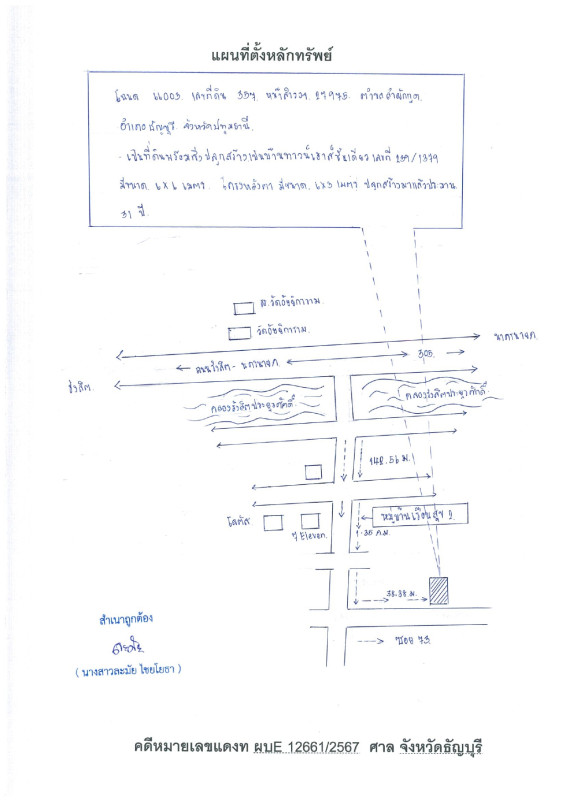 แผนที่ตั้งหลักทรัพย์
โฉนด 11003. เลขที่ดิน 357. หน้าสำรวจ. 27975. ตำบลลำผักกูด.
อำเภอธัญบุรี. จังหวัดปทุมธานี.
- เป็นที่ดินพร้อมสิ่งปลูกสร้างเป็นบ้านทาวน์เฮาส์ชั้นเดียว เลขที่ 259/1379
มีขนาด 4x6 เมตร. โครงหลังคา มีขนาด. 4x3 เมตร ปลูกสร้างมาแล้วประมาณ
31 ปี.
ร.ร.วัดอัยยิการาม.
วัดอัยยิการาม.
นครนายก.
305.
ถนนรังสิต - นครนายก.
รังสิต.
คลองรังสิตประยูรศักดิ์
คลองรังสิตประยูรศักดิ์
148.56 ม.
โลตัส
7 Eleven.
หมู่บ้านเรือนสุข 2
1.35 ก.ม.
38.38 ม.
ซอย 73
สำเนาถูกต้อง
( นางสาวละมัย ไชยโยธา )
คดีหมายเลขแดงที่ ผบE 12661/2567 ศาล จังหวัดธัญบุรี